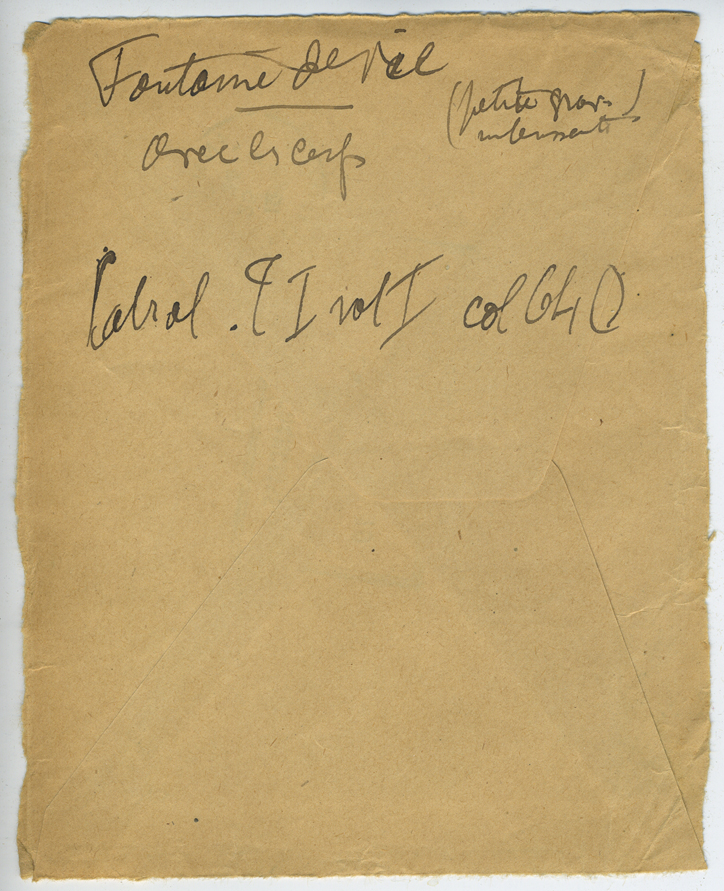 Fontaine de vie
(petite grav.
intéressante)
avec les cerfs
Cabrol. T I vol I col 640